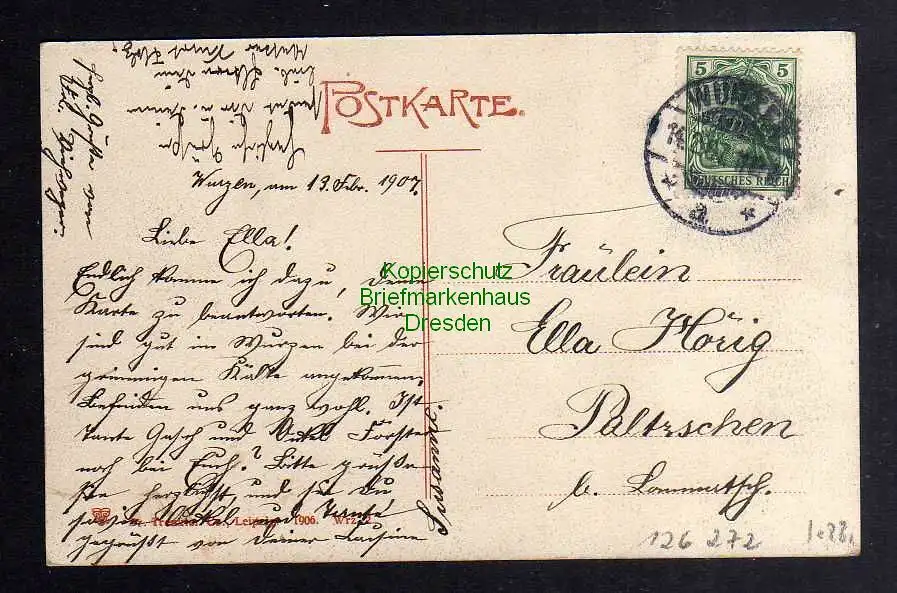 POSTKARTE.
5 5
WURZEN
DEUTSCHES REICH
a.
Wurzen, am 13. Febr. 1907.
Liebe Ella!
Endlich komme ich dazu, deine
Karte zu beantworten. Wir
sind gut in Wurzen bei der
grimmigen Kälte angekommen,
befinden uns ganz wohl. Ist
Tante Gasch und Onkel Förster
noch bei Euch? Bitte grüße
sie herzlichst, und sei Du
sowie Onkel und Tante
gegrüßt von Deiner Cousine
Susanne.
Fräulein
Ella Hörig
Paltzschen
b. Lommatzsch.
Leipzig 1906. Wrz. 2
126 272
Kopierschutz
Briefmarkenhaus
Dresden